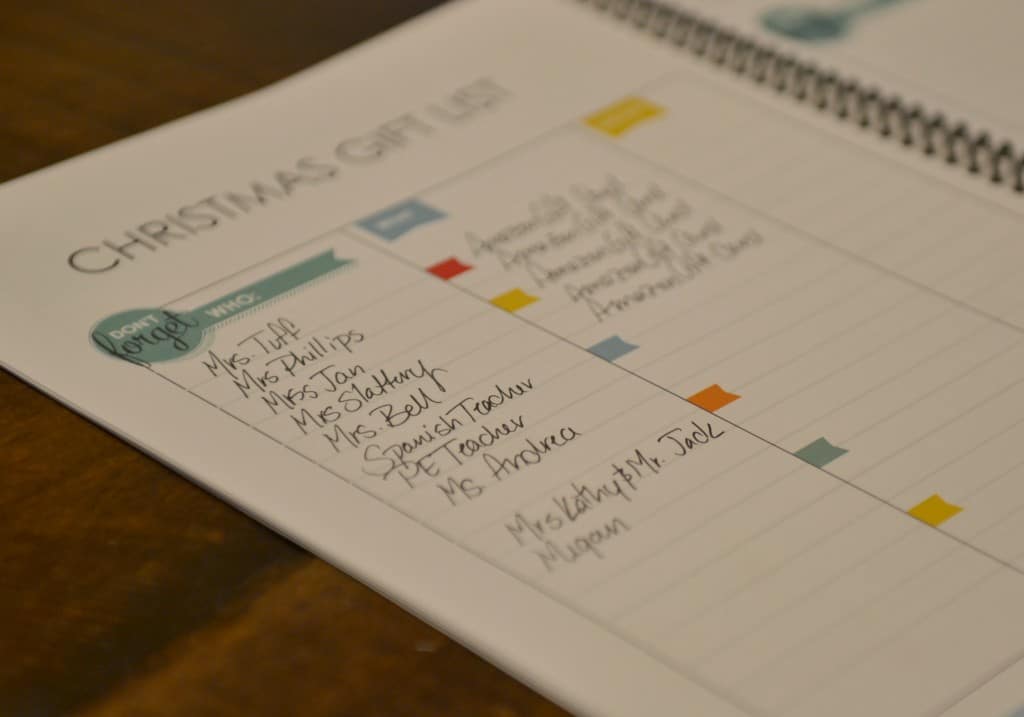 CHRISTMAS GIFT LIST
DON'T
forget
WHO:
Mrs. Tuff
Mrs Phillips
Mrss Jan
Mrs Slattery
Mrs. Bell
Spanish Teacher
PE Teacher
Ms. Andrea
Mrs Kathy & Mr. Jack
Megan
Amazon Gift Card
Amazon Gift Card
Amazon Gift Card
Amazon Gift Card
Amazon Gift Card